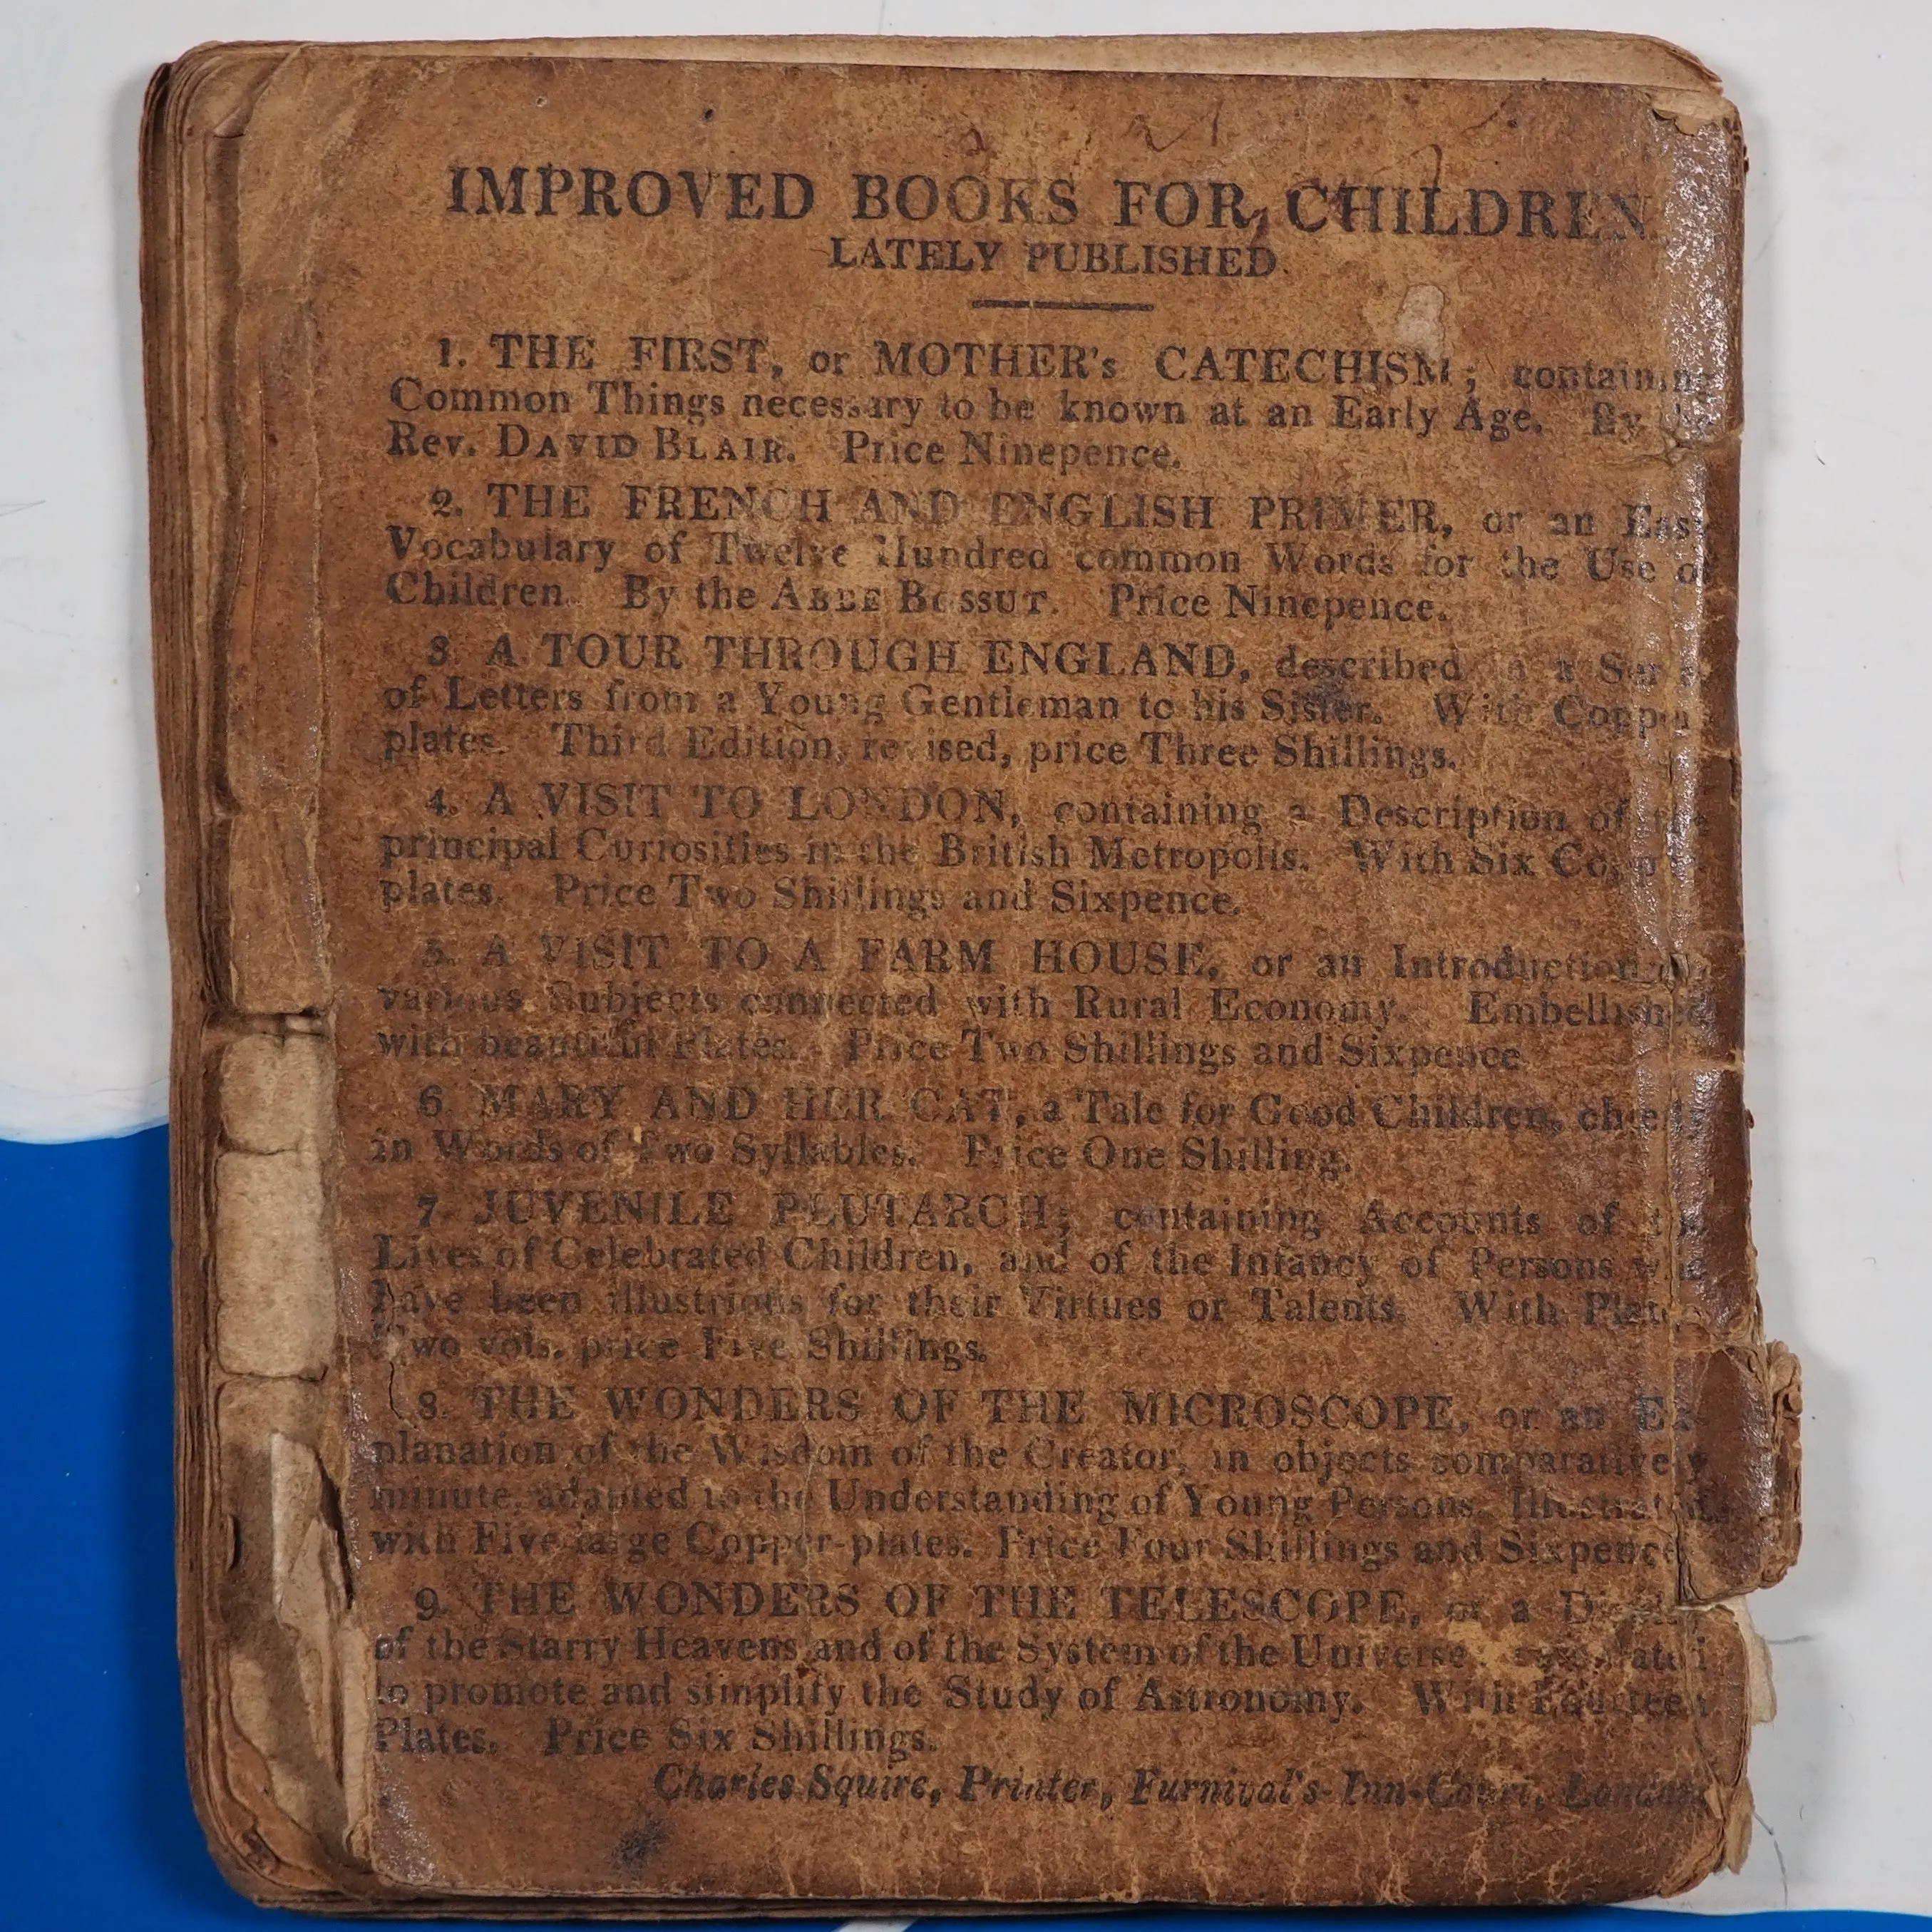 IMPROVED BOOKS FOR CHILDREN
LATELY PUBLISHED
1. THE FIRST, or MOTHER's CATECHISM; containing
Common Things necessary to be known at an Early Age. By
Rev. DAVID BLAIR. Price Ninepence.
2. THE FRENCH AND ENGLISH PRIMER, or an Easy
Vocabulary of Twelve Hundred common Words for the Use of
Children. By the ABBE BOSSUT. Price Ninepence.
3. A TOUR THROUGH ENGLAND, described in a Series
of Letters from a Young Gentleman to his Sister. With Copper
plates. Third Edition, revised, price Three Shillings.
4. A VISIT TO LONDON, containing a Description of the
principal Curiosities in the British Metropolis. With Six Copper
plates. Price Two Shillings and Sixpence.
5. A VISIT TO A FARM HOUSE, or an Introduction
various Subjects connected with Rural Economy. Embellished
with beautiful Plates. Price Two Shillings and Sixpence
6. MARY AND HER CAT, a Tale for Good Children, chiefly
in Words of Two Syllables. Price One Shilling.
7 JUVENILE PLUTARCH; containing Accounts of the
Lives of Celebrated Children, and of the Infancy of Persons who
have been illustrious for their Virtues or Talents. With Plates
Two vols. price Five Shillings.
8. THE WONDERS OF THE MICROSCOPE, or an Ex-
planation of the Wisdom of the Creator, in objects comparatively
minute, adapted to the Understanding of Young Persons. Illustrated
with Five large Copper-plates. Price Four Shillings and Sixpence
9. THE WONDERS OF THE TELESCOPE, or a Display
of the Starry Heavens and of the System of the Universe
to promote and simplify the Study of Astronomy. With Fourteen
Plates. Price Six Shillings.
Charles Squire, Printer, Furnival's-Inn-Court, London